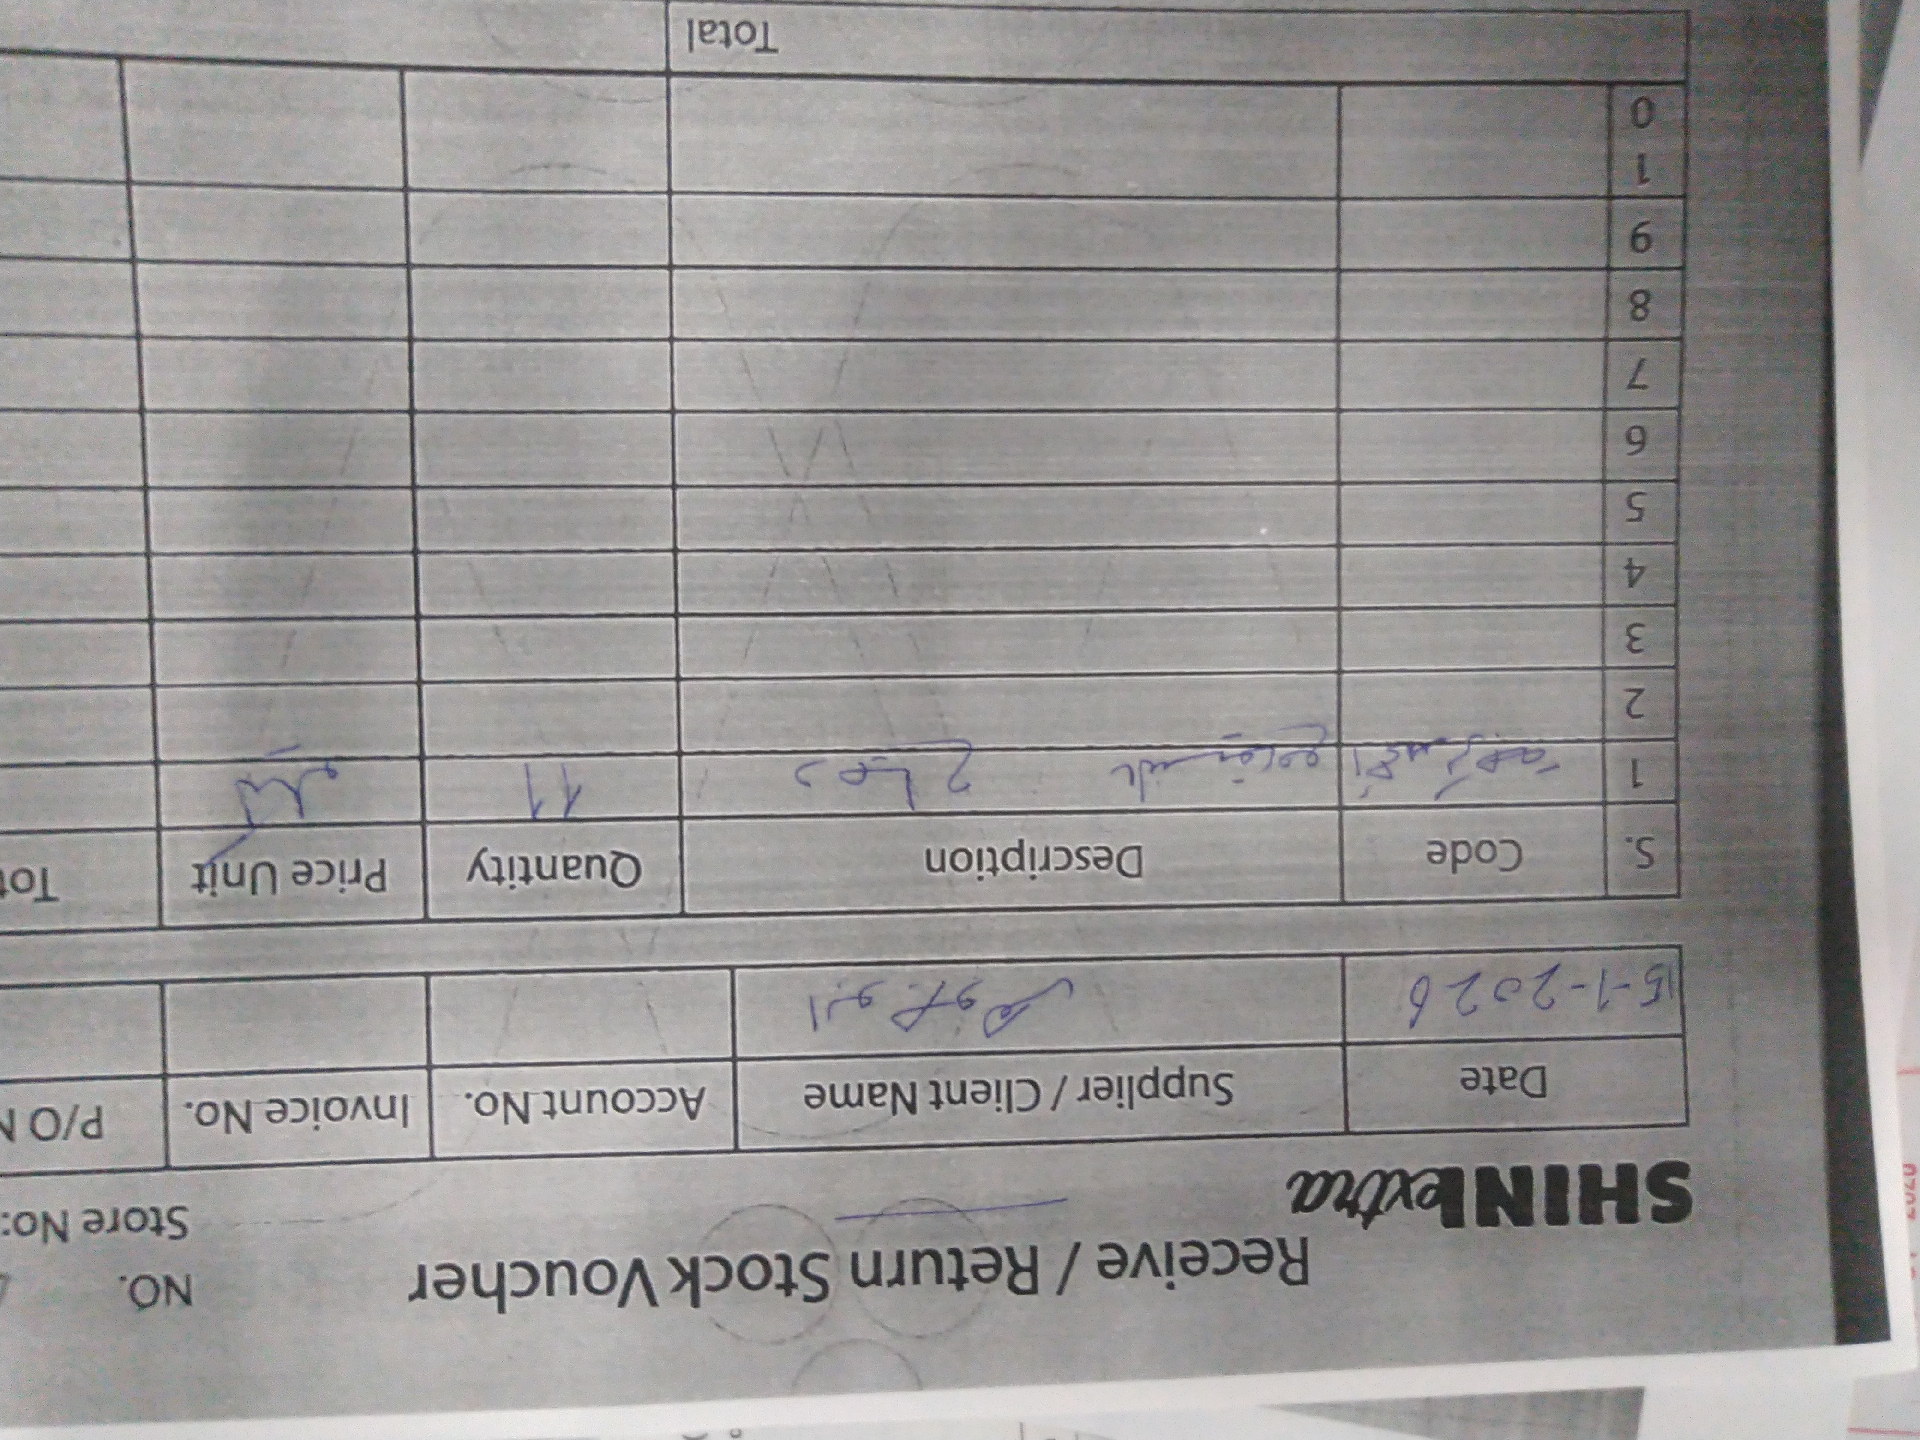 Receive / Return Stock Voucher
NO.
SHINExtra
Store No:
Date Supplier / Client Name Account No. Invoice No. P/O N
15-1-2026
S. Code Description Quantity Price Unit Tot
1 11
2
3
4
5
6
7
8
9
1
0
Total